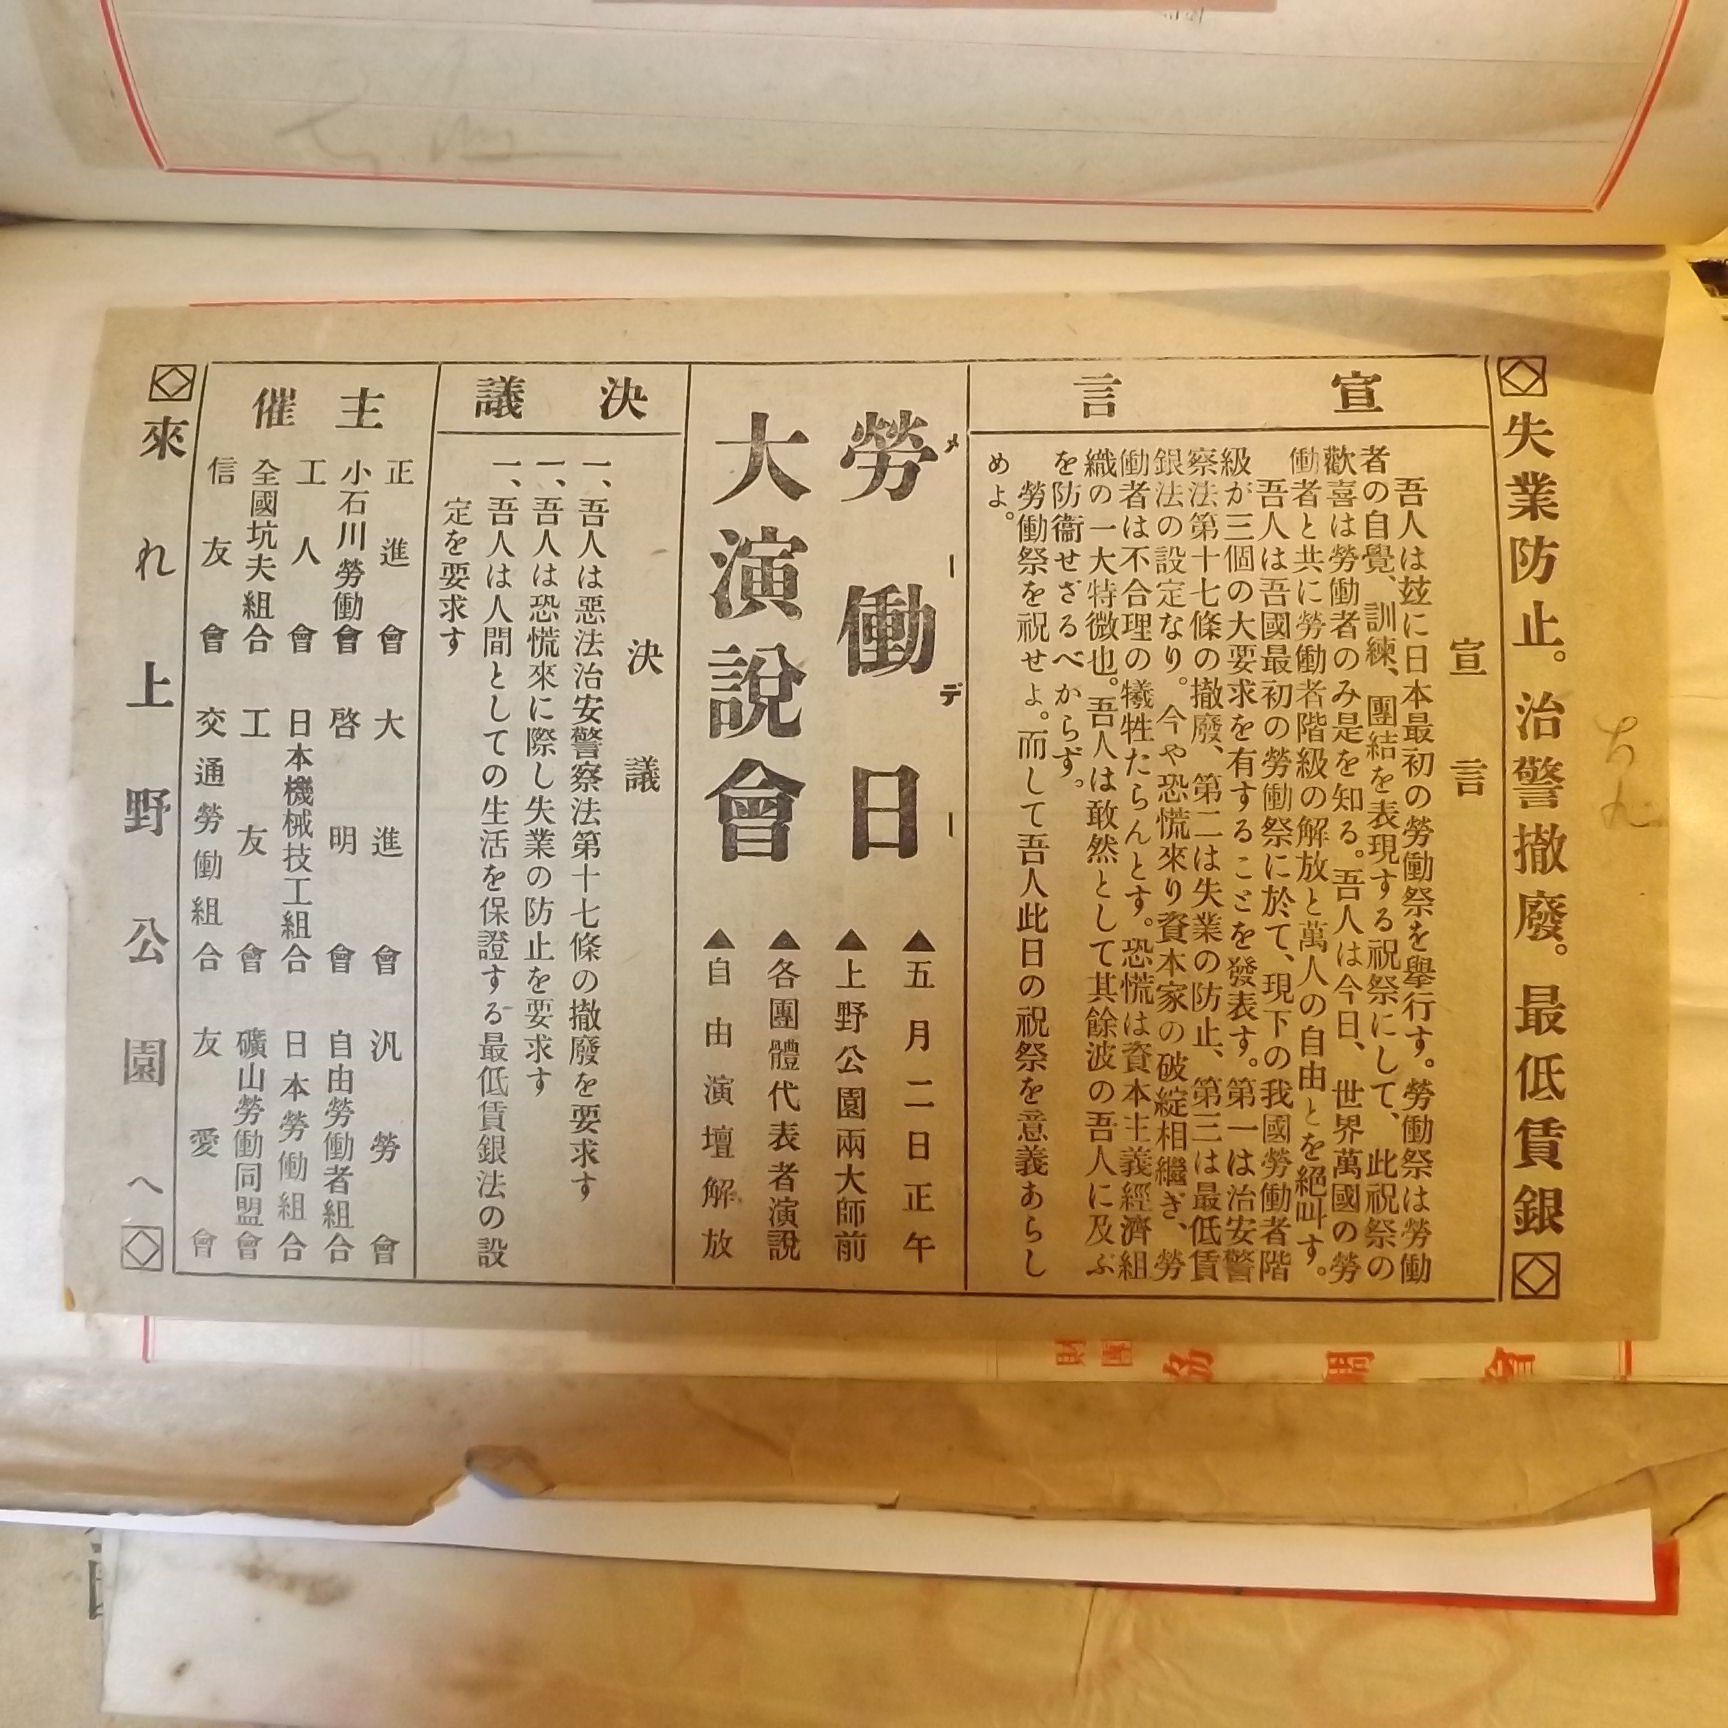 失業防止。治警撤廢。最低賃銀
宣言
宣言
吾人は玆に日本最初の勞働祭を擧行す。勞働祭は勞働
者の自覺、訓練、團結を表現する祝祭にして、此祝祭の
歡喜は勞働者のみ是を知る。吾人は今日、世界萬國の勞
働者と共に勞働者階級の解放と萬人の自由とを絕叫す。
吾人は吾國最初の勞働祭に於て、現下の我國勞働者階
級が三個の大要求を有することを發表す。第一は治安警
察法第十七條の撤廢、第二は失業の防止、第三は最低賃
銀法の設定なり。今や恐慌來り資本家の破綻相繼ぎ、勞
働者は不合理の犧牲たらんとす。恐慌は資本主義經濟組
織の一大特徴也。吾人は敢然として其餘波の吾人に及ぶ
を防衞せざるべからず。
勞働祭を祝せよ。而して吾人此日の祝祭を意義あらし
めよ。
勞働日
メーデー
大演說會
▲五月二日正午
▲上野公園兩大師前
▲各團體代表者演說
▲自由演壇解放
決議
決議
一、吾人は惡法治安警察法第十七條の撤廢を要求す
一、吾人は恐慌來に際し失業の防止を要求す
一、吾人は人間としての生活を保證する最低賃銀法の設
定を要求す
主催
正進會 大進會 汎勞會
小石川勞働會 啓明會 自由勞働者組合
工人會 日本機械技工組合 日本勞働組合
全國坑夫組合 工友會 礦山勞働同盟會
信友會 交通勞働組合 友愛會
來れ上野公園へ
財團
協調會